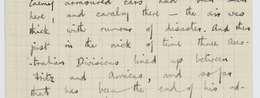 enemy armoured cars had been seen
here, and cavalry there – the air was
thick with rumours of disaster. And then
just in the nick of time three Aus-
tralian Divisions lined up between
and Amiens, and so far
that has been the end of his ad-